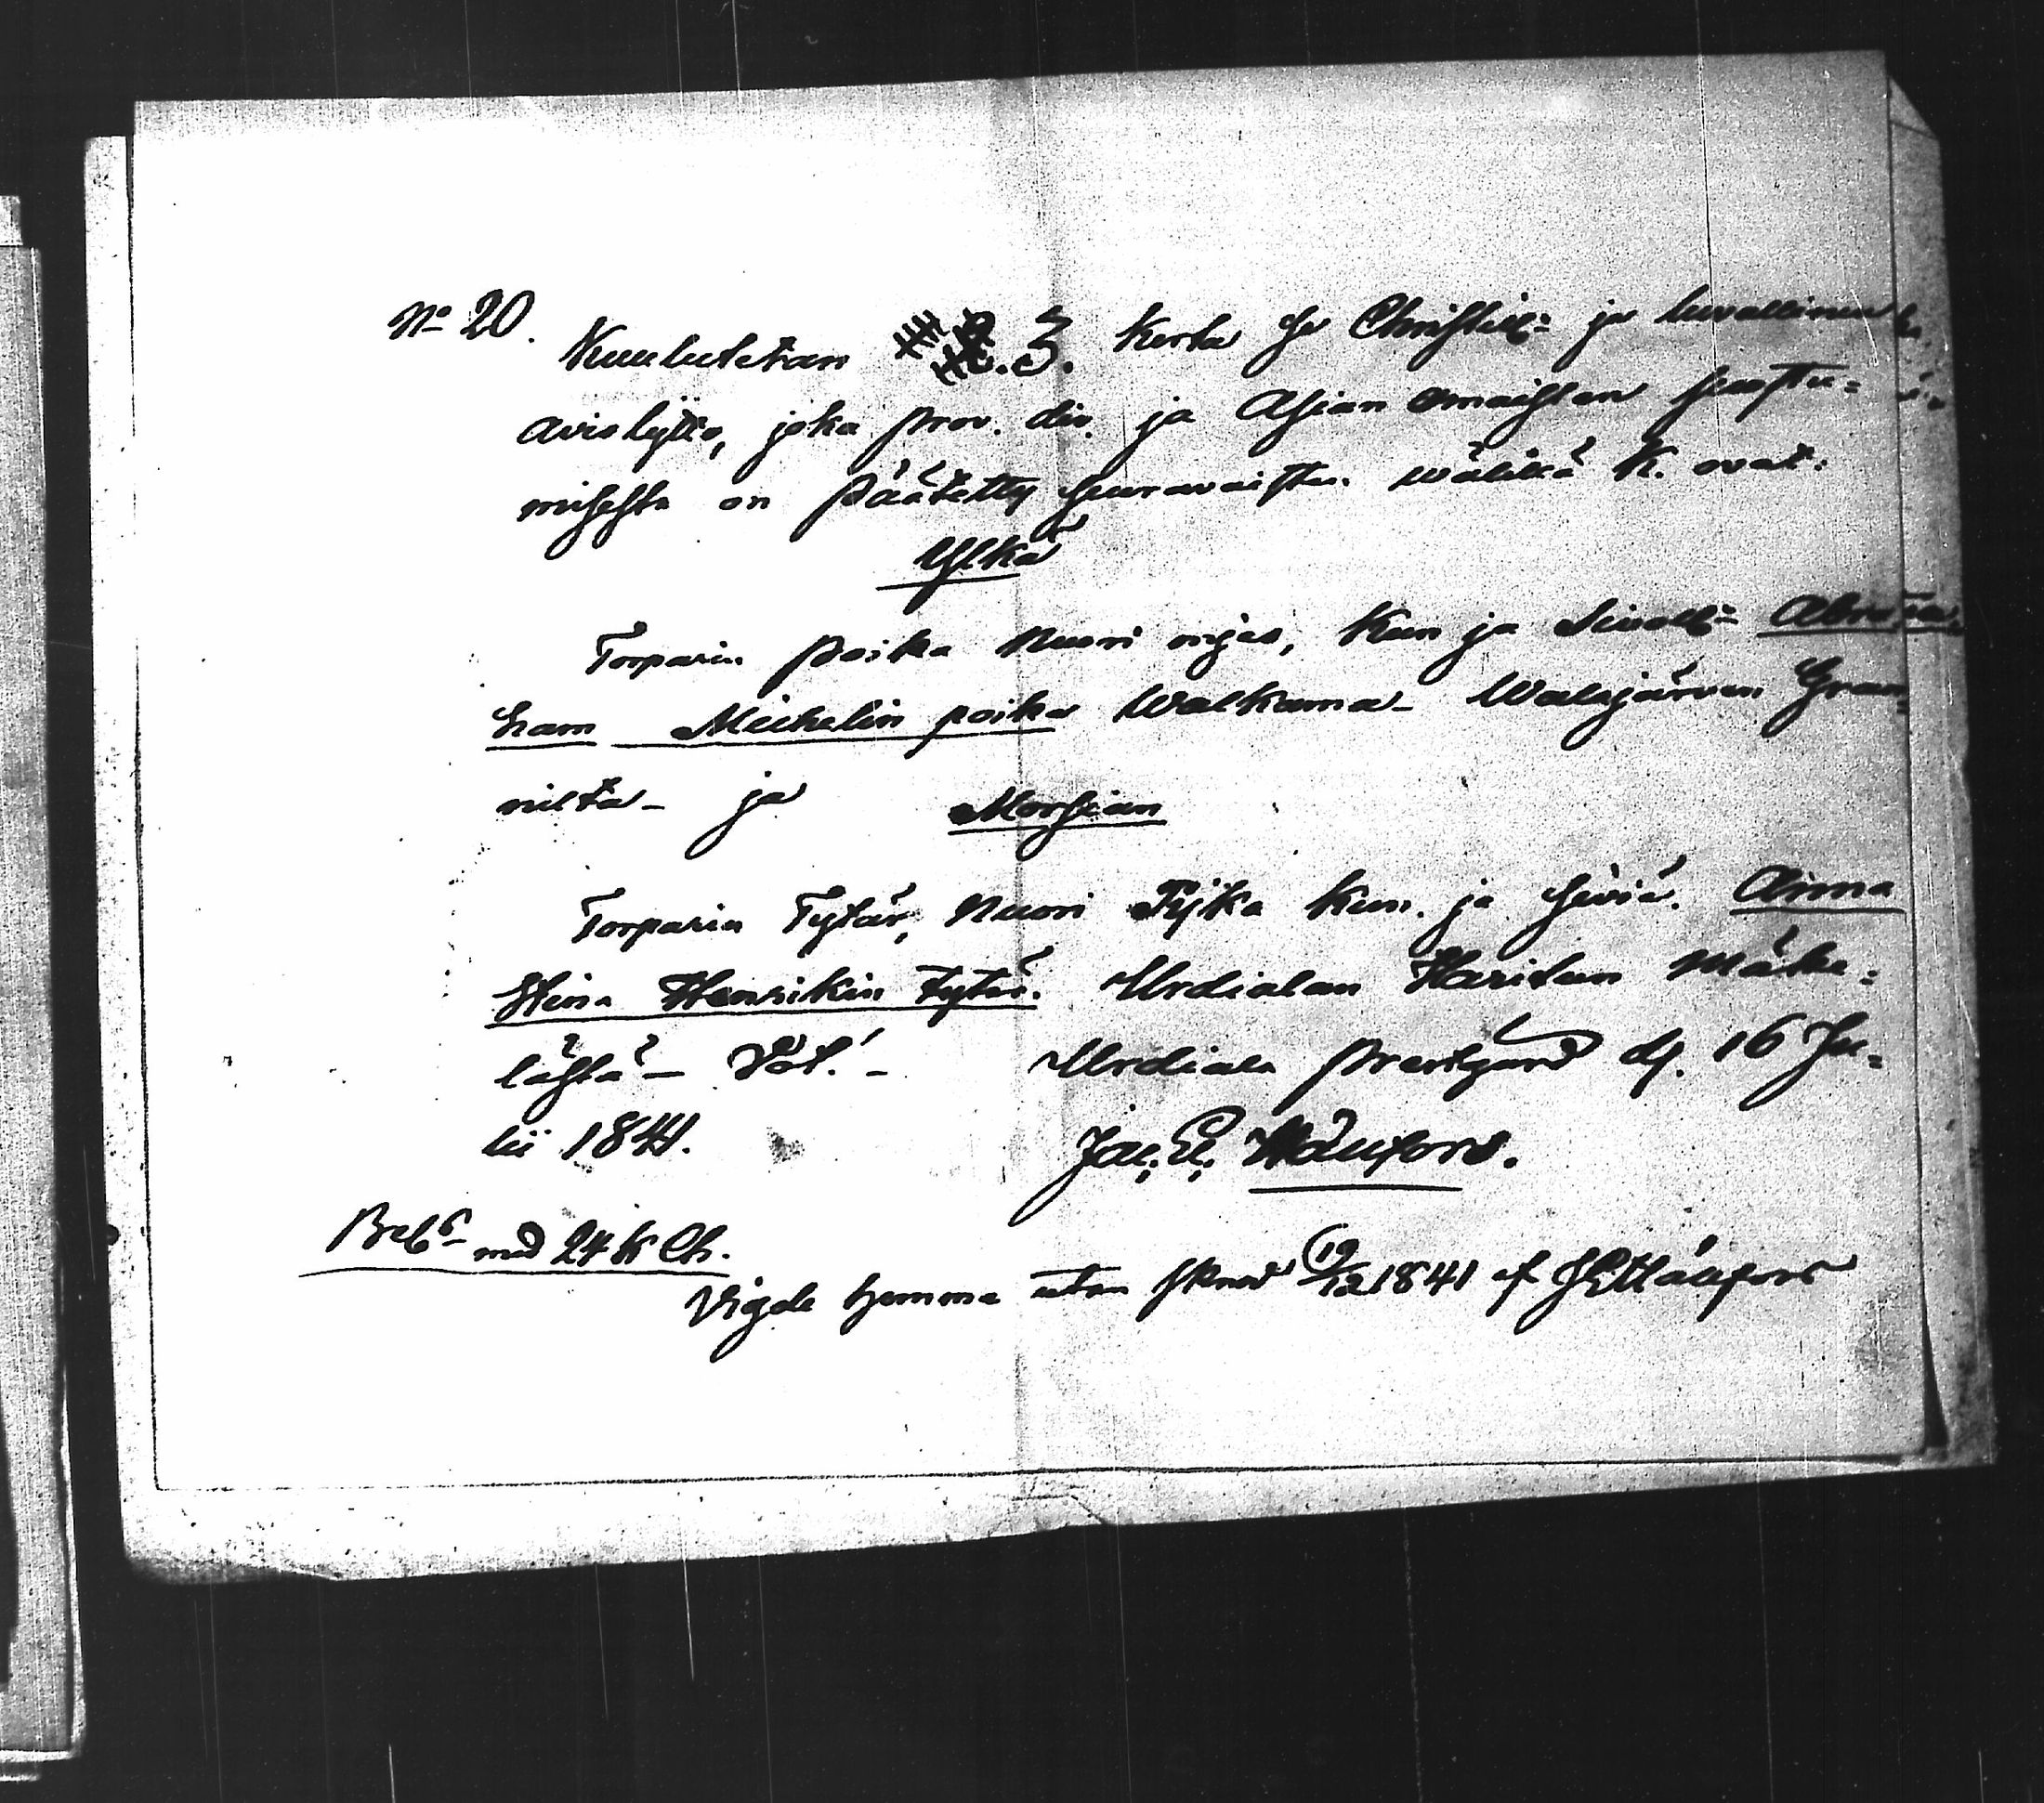 No 20. Kuulutetan 3. kerta se Christill: ja luvallinen
avioliitto, joka prov. div. ja Asian omaisten suostu=
misesta on päätetty seuravaisten wälillä K. ovat:
Ylkä
Torparin poika Nuori mjes, Kun ja Siviall: Abra=
ham Michelin poika Walkama- Walajärven Gran=
nilta- ja Morsian
Torparin Tytär, Nuori Pijka Kun. ja Siviä. Anna
Stina Henrikin tytär. Urdialan Hariten Mäke=
lästä-
Urdiala Prestgård d. 16 Ju=
lii 1841. Jac. E.
med 24 K
Vigde hemma utan 19/12 1841 af